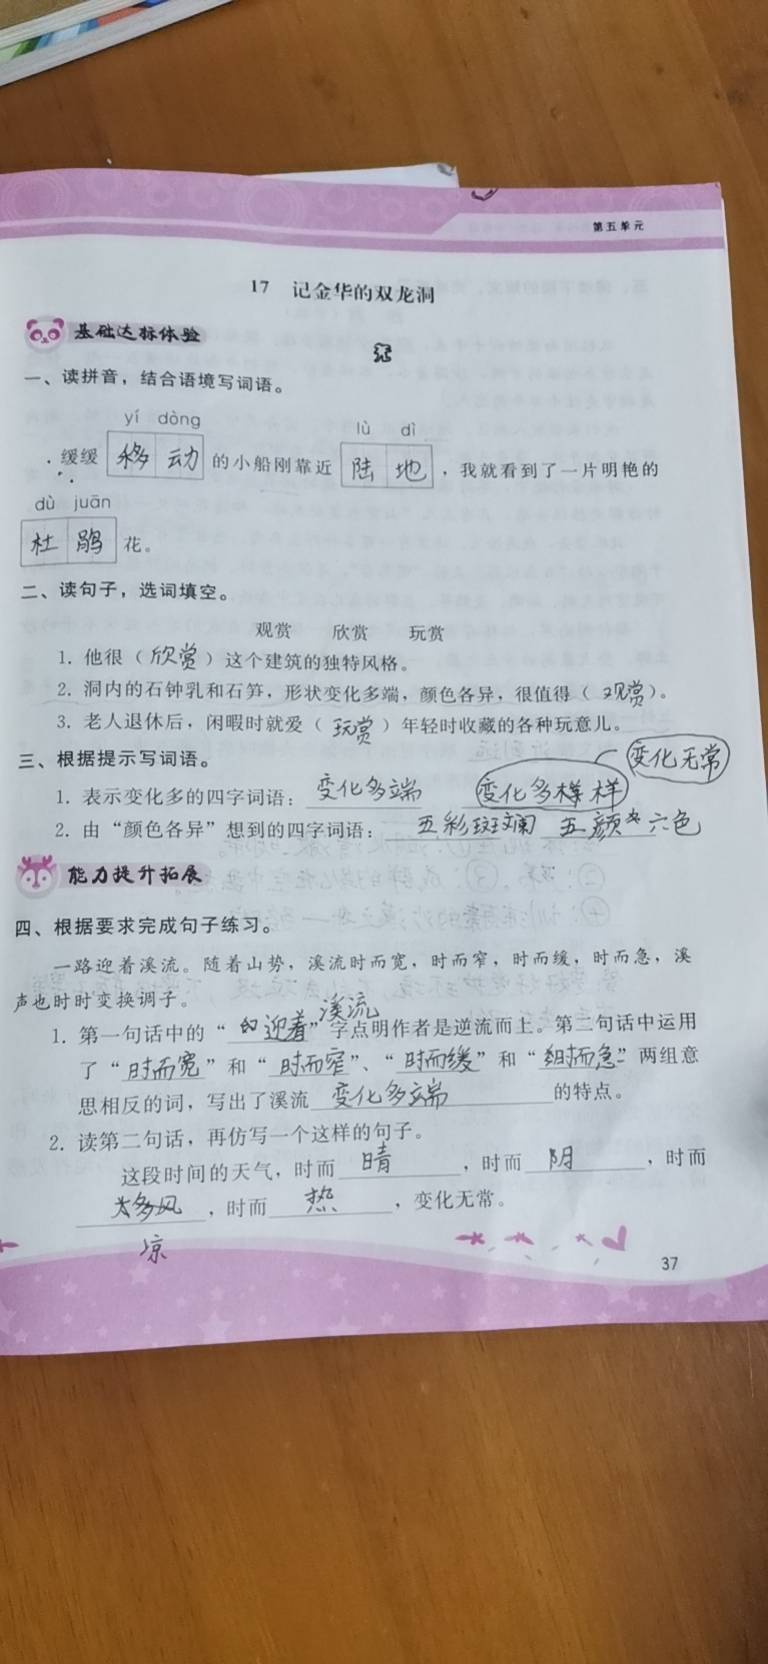 第五单元
17 记金华的双龙洞
基础达标体验
一、读拼音，结合语境写词语。
yí dòng
lù dì
缓缓 移动 的小船刚靠近 陆地 ，我就看到了一片明艳的
dù juān
杜鹃 花。
二、读句子，选词填空。
观赏 欣赏 玩赏
1. 他很（欣赏）这个建筑的独特风格。
2. 洞内的石钟乳和石笋，形状变化多端，颜色各异，很值得（观赏）。
3. 老人退休后，闲暇时就爱（玩赏）年轻时收藏的各种玩意儿。
三、根据提示写词语。
变化无常
1. 表示变化多的四字词语：变化多端 变化多样
2. 由“颜色各异”想到的四字词语：五彩斑斓 五颜六色
能力提升拓展
四、根据要求完成句子练习。
一路迎着溪流。随着山势，溪流时而宽，时而窄，时而缓，时而急，溪
声也时时变换调子。
溪流
1. 第一句话中的“迎着”字点明作者是逆流而上。第二句话中运用
了“时而宽”和“时而窄”、“时而缓”和“时而急”两组意
思相反的词，写出了溪流变化多端的特点。
2. 读第二句话，再仿写一个这样的句子。
这段时间的天气，时而晴，时而阴，时而
，时而热，变化无常。
凉
37